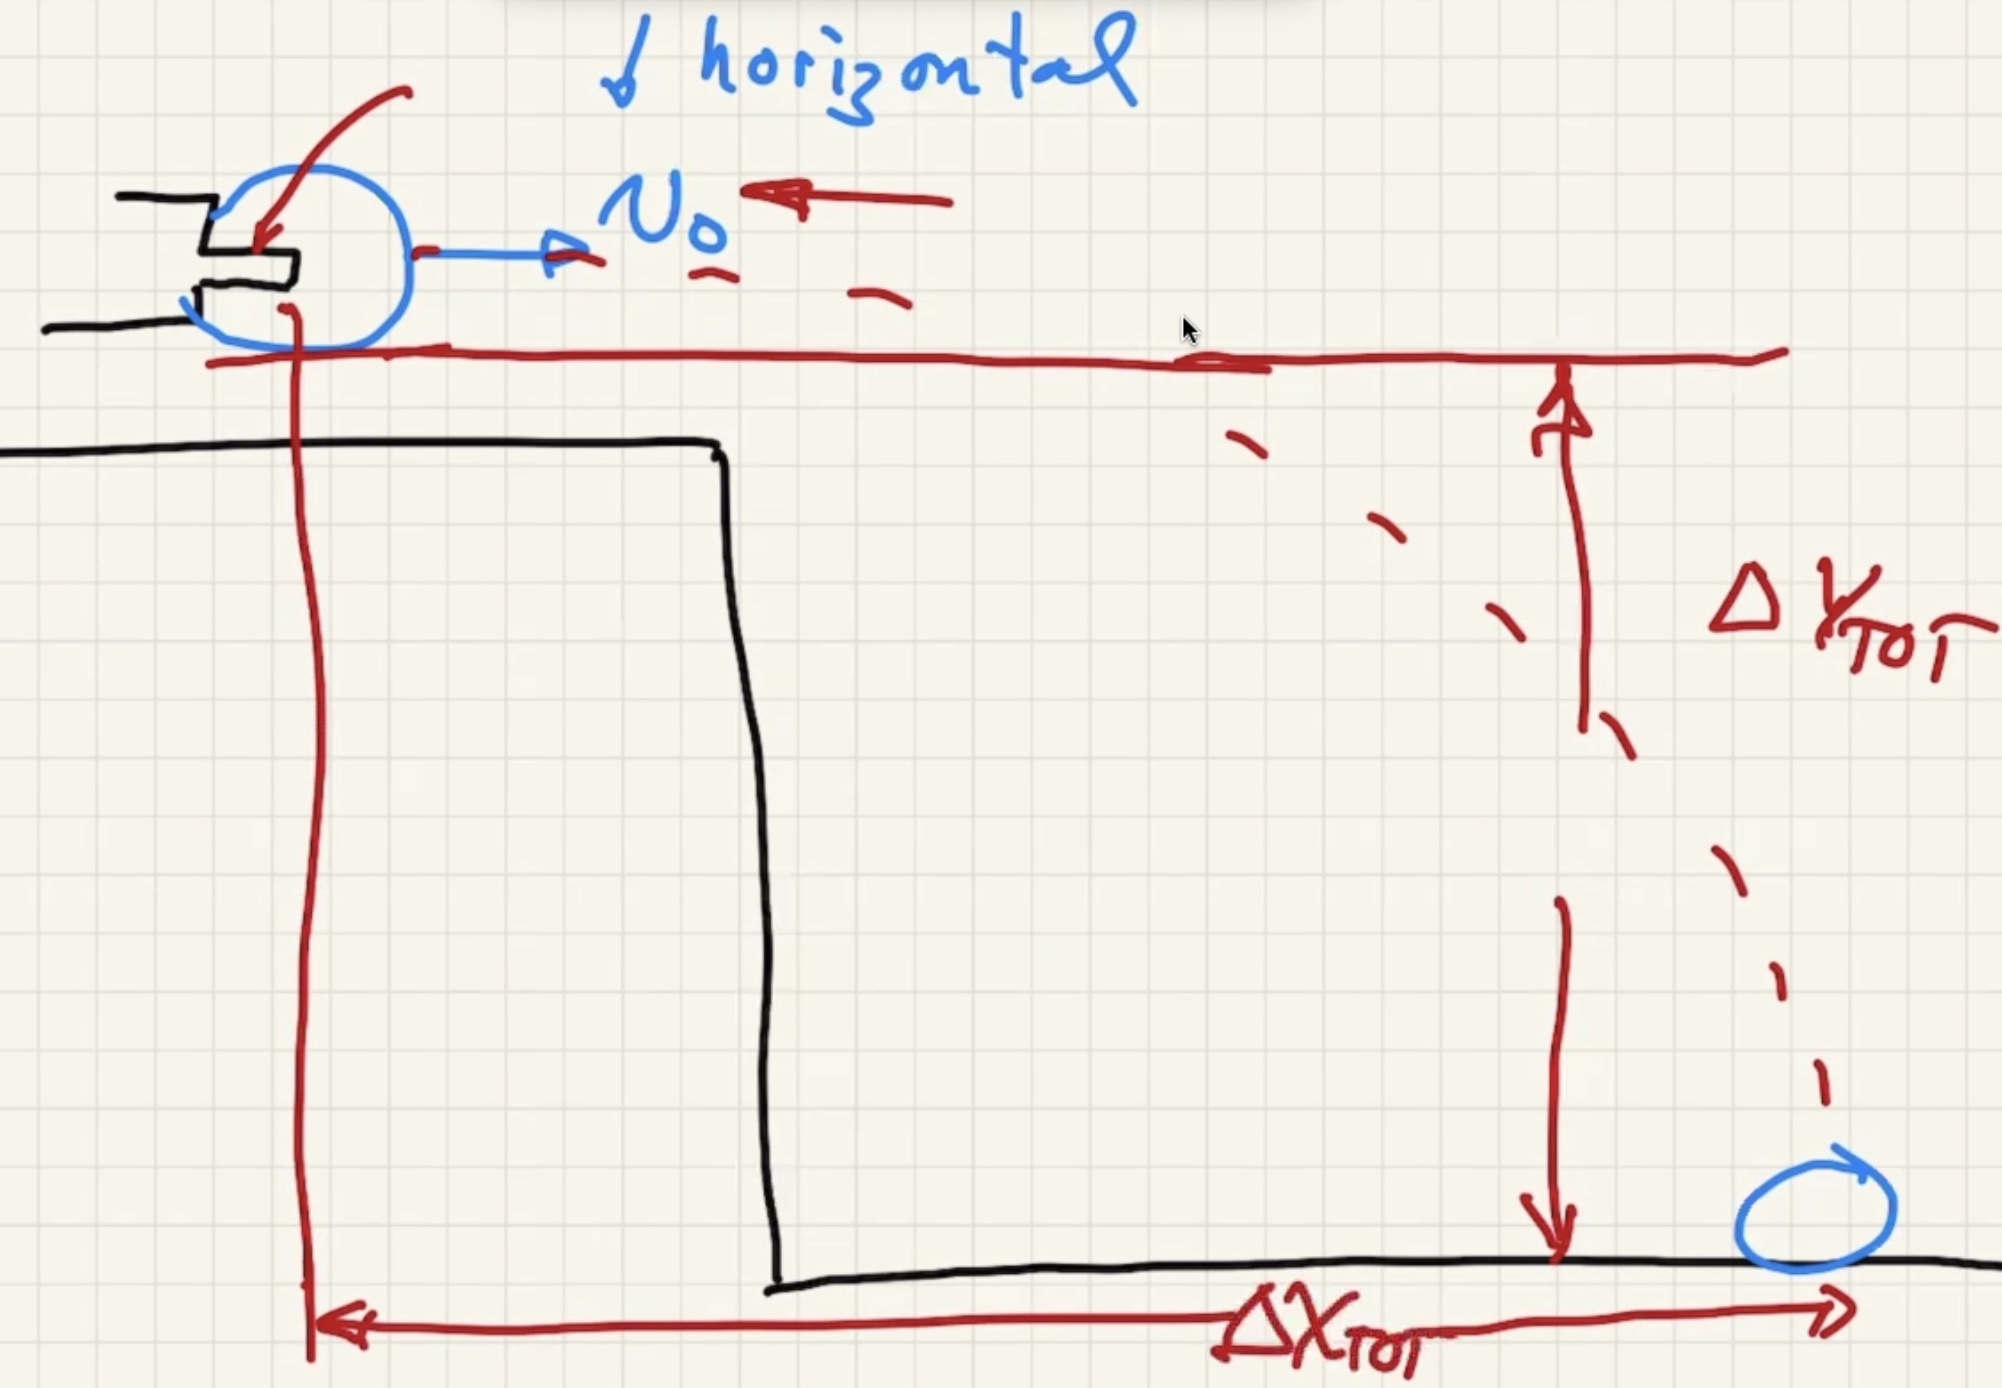 horizontal
v₀
Δy_TOT
Δx_TOT